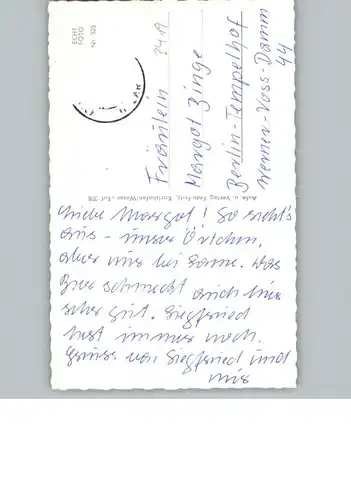 ECHT
FOTO
Nr. 525
Fräulein
Margot Zinge
Berlin-Tempelhof
Werner-Voss-Damm
44
Aufn. u. Verlag Foto-Fritz,
Liebe Margot! So sieht's
aus - unser Örtchen,
aber nur bei Sonne. Das
Bier schmeckt auch hier
sehr gut. Siegfried
hust immer noch.
Gruss von Siegfried und
mir